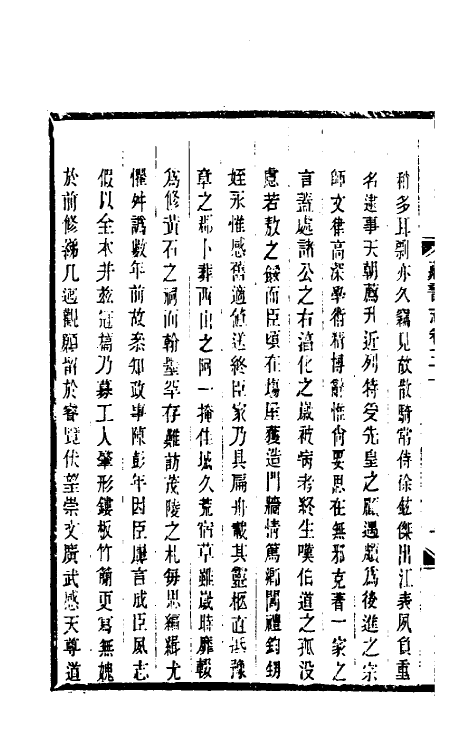 稍多耳剽亦久竊見故散騎常侍徐鉉傑出江表夙負重
名逮事天朝薦升近列特受先皇之顧遇蔚爲後進之宗
師文律高深學術精博辭惟尙要思在無邪克著一家之
言蓋處諸公之右淯化之歲被病考終生嘆伯道之孤没
慮若敖之餒而臣頃在塲屋獲造門牆情篤鄉閭禮鈞甥
姪永惟感舊適値送終臣家乃具扁舟載其靈柩直抵豫
章之鄰卜葬西山之阿一掩佳城久荒宿草雖歲時靡輟
爲修黃石之祠而翰墨罕存難訪茂陵之札每思編緝尤
懼舛譌數年前故叅知政事陳彭年因臣屢言成臣夙志
假以全本并茲冠篇乃募工人肇形鏤板竹簡更寫無媿
於前修綈几迺觀願留於睿覽伏望崇文廣武感天尊道